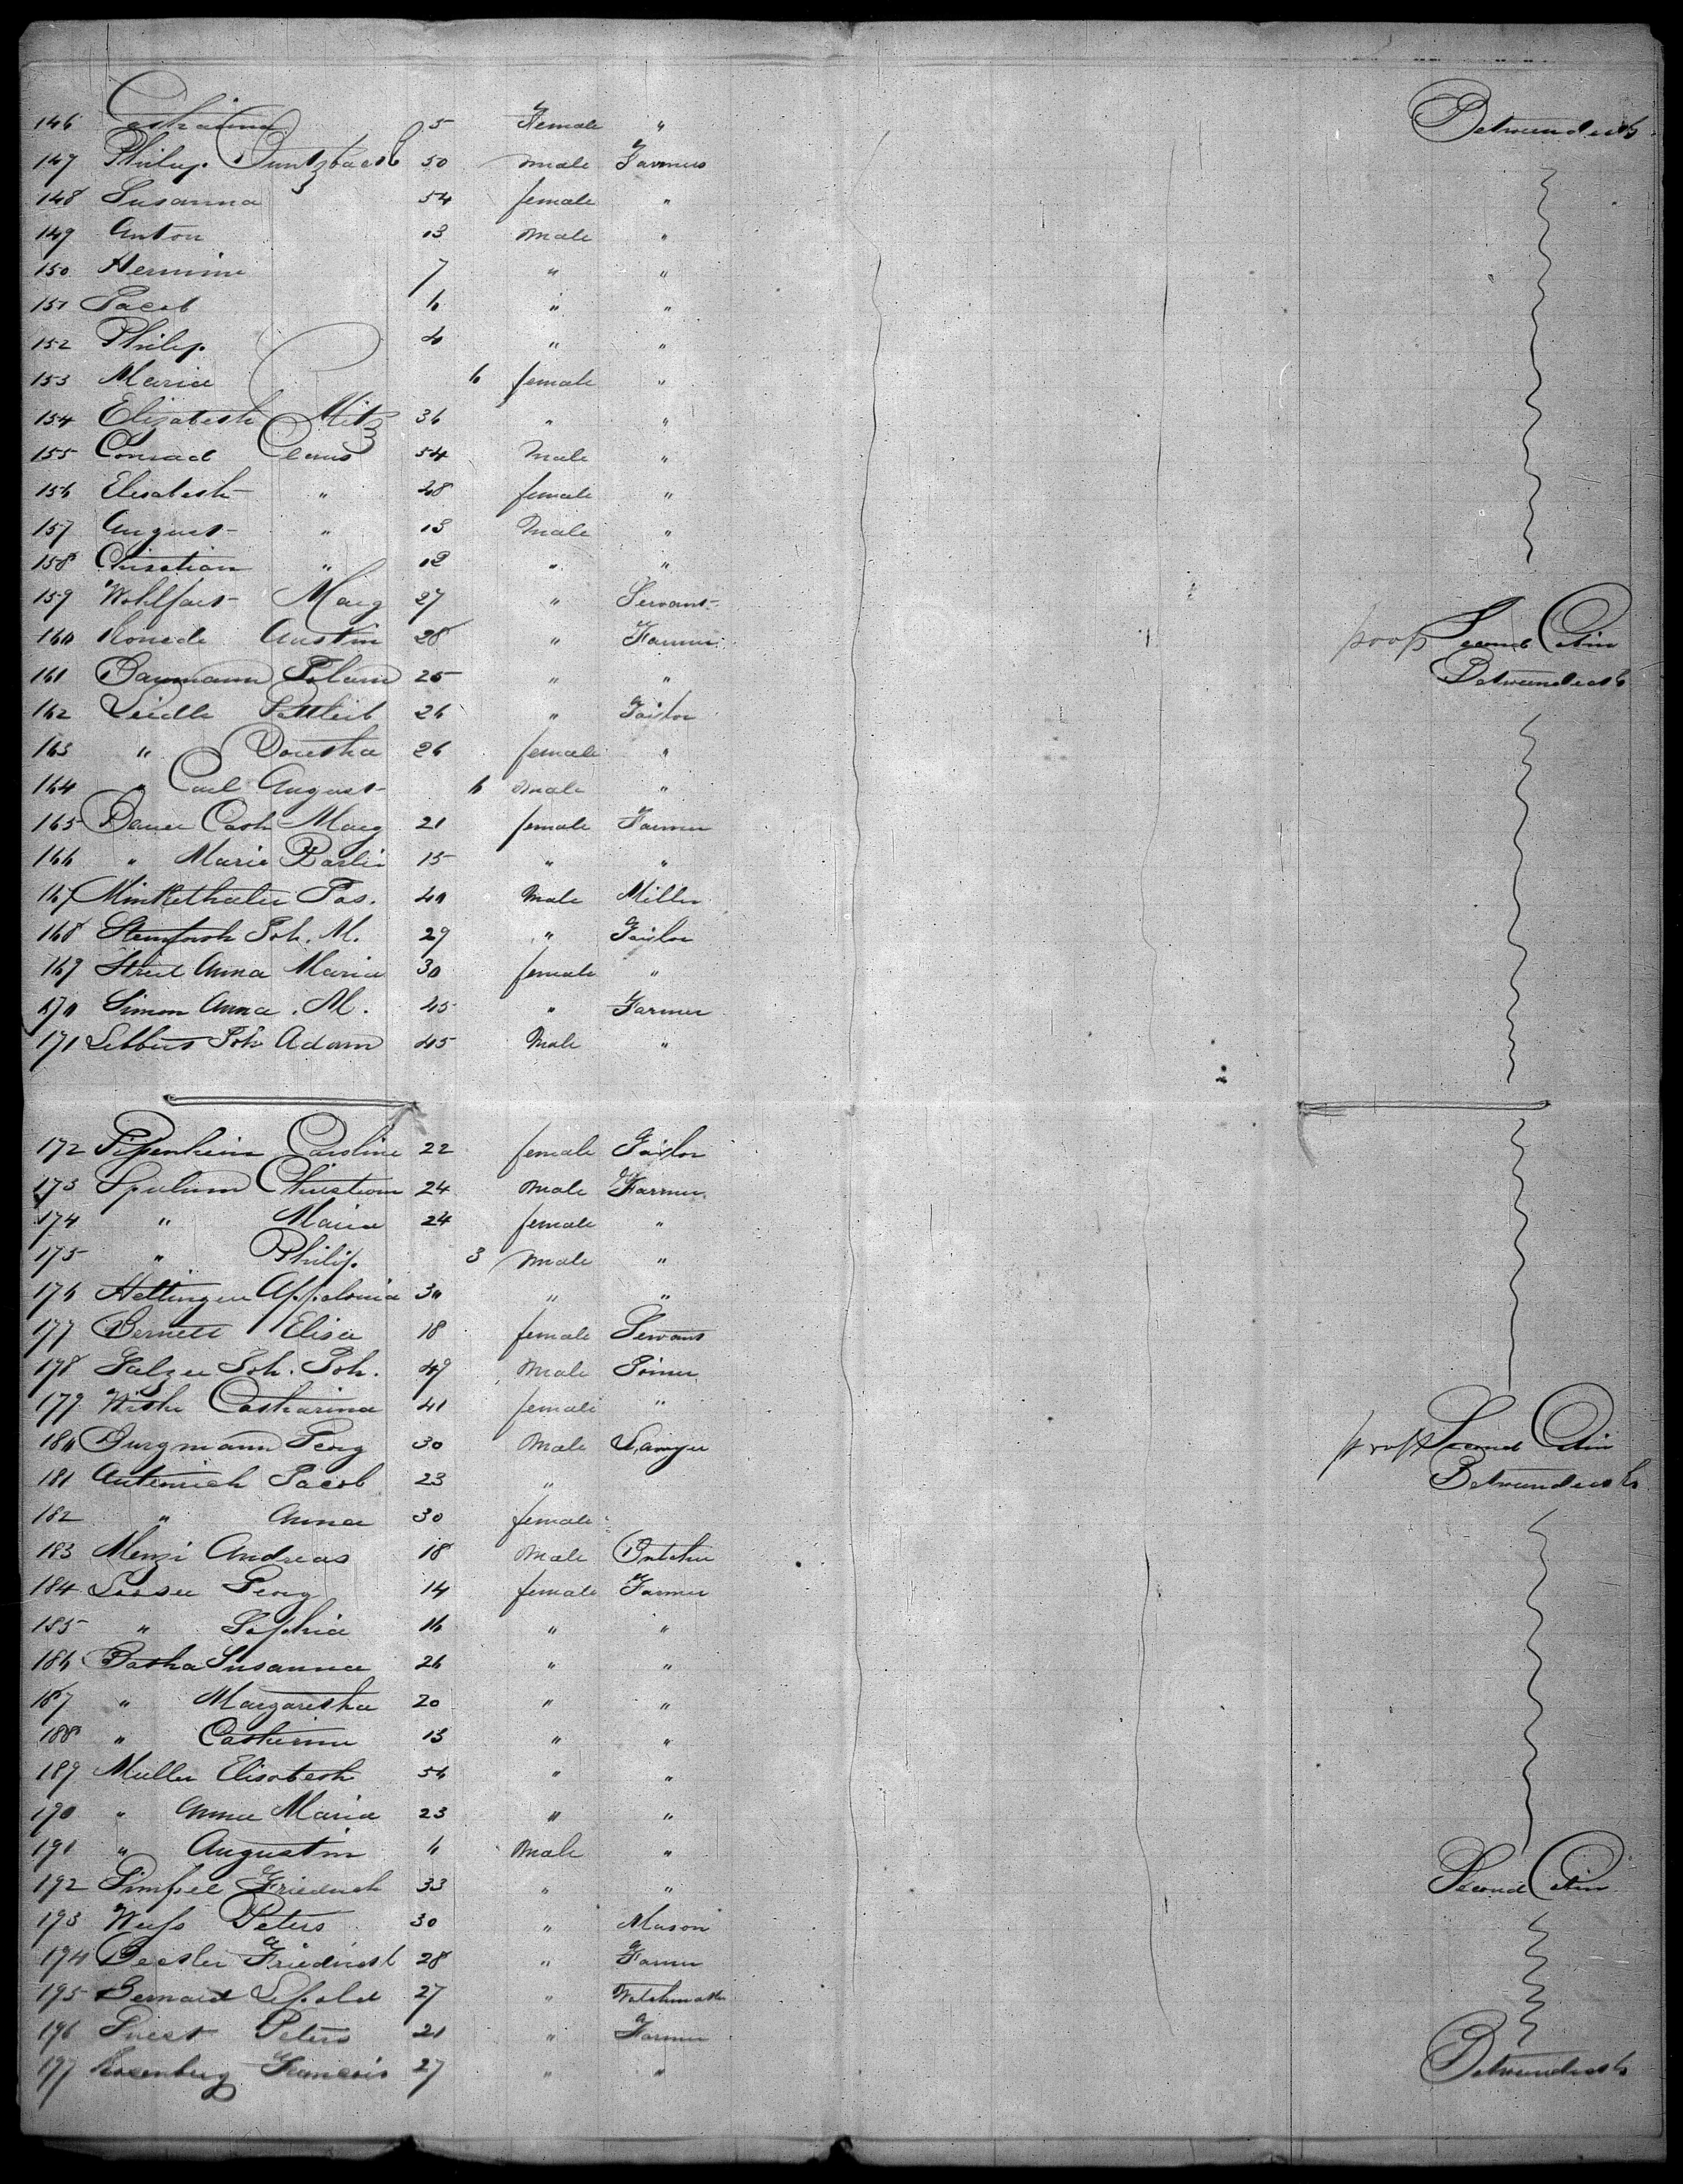 146 Catharina 5 Female " Betweendecks
147 Philip Duntzbach 50 male Farmers
148 Susanna 54 female "
149 Anton 13 Male "
150 Hermine 7 " "
151 Jacob 6 " "
152 Philip 4 " "
153 Maria 6 female "
154 Elizabeth Mitz 36 " "
155 Conrad Claus 54 Male "
156 Elisabeth " 48 female "
157 August " 13 Male "
158 Christian " 12 " "
159 Wohlfart Marg 27 " Servant
160 Austin 28 " Farmer poop Second Cabin
161 Baumann 25 " " Betweendecks
162 Leidle Gottleib 26 " Tailor
163 " Doretha 26 female "
164 " Carl August 6 Male "
165 Bauer Cath Marg 21 female Farmer
166 " Marie 15 " "
167 Minkethaler Jos. 40 Male Miller
168 Joh. M. 29 " Tailor
169 Streit Anna Maria 30 female "
170 Simon Anna . M. 45 " Farmer
171 Joh Adam 45 Male "
172 Caroline 22 female Tailor
173 Christian 24 Male Farmer
174 " Maria 24 female "
175 " Philip 3 Male "
176 Hettinger Appelonia 30 " "
177 Elisa 18 female Servant
178 Salzer Joh. Joh. 49 Male Joiner
179 Catharina 41 female "
180 Burgmann Georg 30 Male Lawyer poop Second Cabin
181 Autenrich Jacob 23 " Betweendecks
182 " Anna 30 female "
183 Menzi Andreas 18 Male Butcher
184 Georg 14 female Farmer
185 " Sophia 16 " "
186 Botha Susanna 26 " "
187 " Margaretha 20 " "
188 " Catherine 13 " "
189 Muller Elisabeth 56 " "
190 " Anna Maria 23 " "
191 " Augustin 6 Male "
192 Friedrich 33 " " Second Cabin
193 Weiss Peters 30 " Mason
194 Friedrich 28 " Farmer
195 Bernard Lepold 27 " Watchmaker
196 Priest Peters 21 " Farmer
197 Rosenberg Francois 27 " " Betweendecks